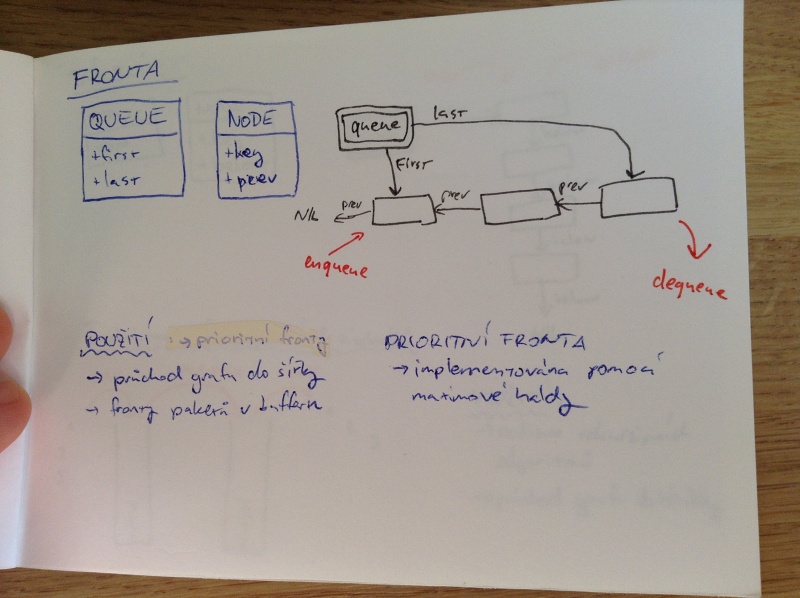 FRONTA
QUEUE
+first
+last
NODE
+key
+prev
queue
last
First
prev
prev
prev
NIL
enqueue
dequeue
POUŽITÍ : → prioritní fronty
→ průchod grafu do šířky
→ fronty paketů v bufferu
PRIORITNÍ FRONTA
→ implementována pomocí
maximové haldy